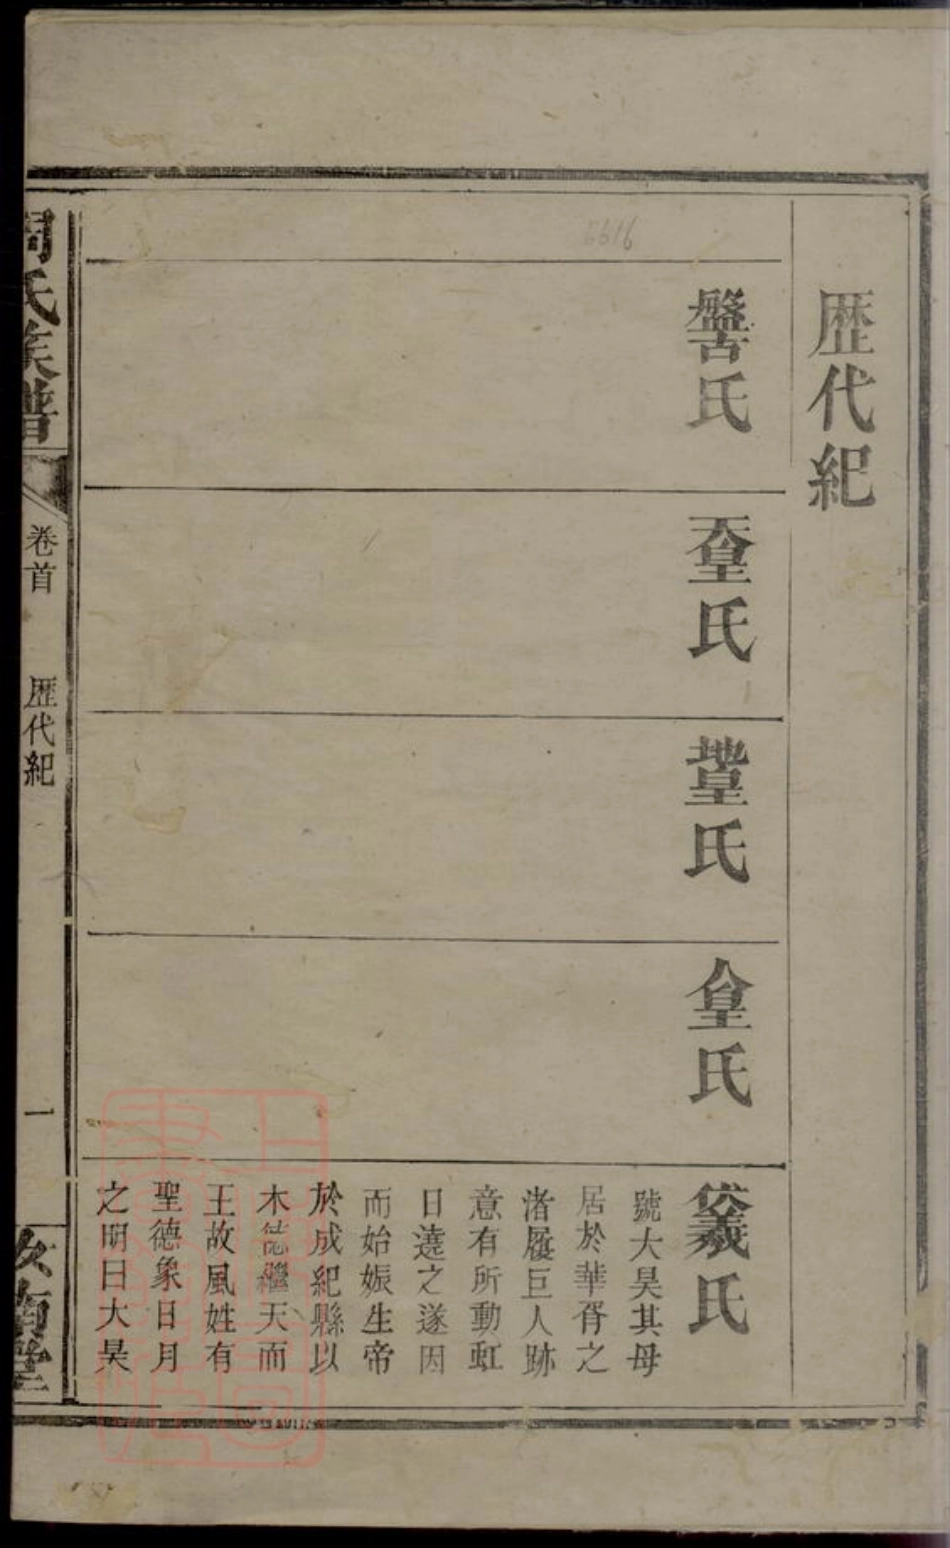 歴代紀
盤古氏
天皇氏
地皇氏
人皇氏
伏羲氏
號大昊其母
居於華胥之
渚履巨人跡
意有所動虹
日遶之遂因
而始娠生帝
於成紀縣以
木德繼天而
王故風姓有
聖德象日月
之明曰大昊
周氏族譜
卷首
歴代紀
一
汝南堂
6616